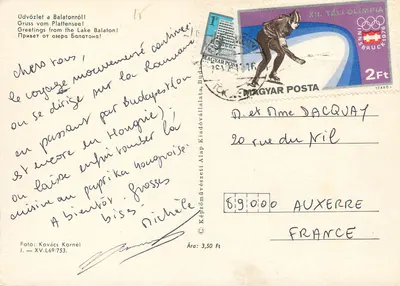 Üdvözlet a Balatonról!
Gruss vom Plattensee!
Greetings from the Lake Balaton!
Привет от озера Балатона!
chers tous,
le voyage mouvementé continue
on se dirige sur la Roumanie
en passant par Budapest (on
est encore en Hongrie)
on laisse enfin tomber la
cuisine au paprika hongroise.
A bientôt. Grosses
bises
Michèle
Foto: Kovács Kornél
I. — XV.L69.753.
Ára: 3,50 Ft
© Képzőművészeti Alap Kiadóvállalata, Budapest
XII. TÉLI OLIMPIA
INNSBRUCK 1976
2Ft
MAGYAR POSTA
M. et Mme DACQUAY
20 rue du Nil
89000 AUXERRE
FRANCE